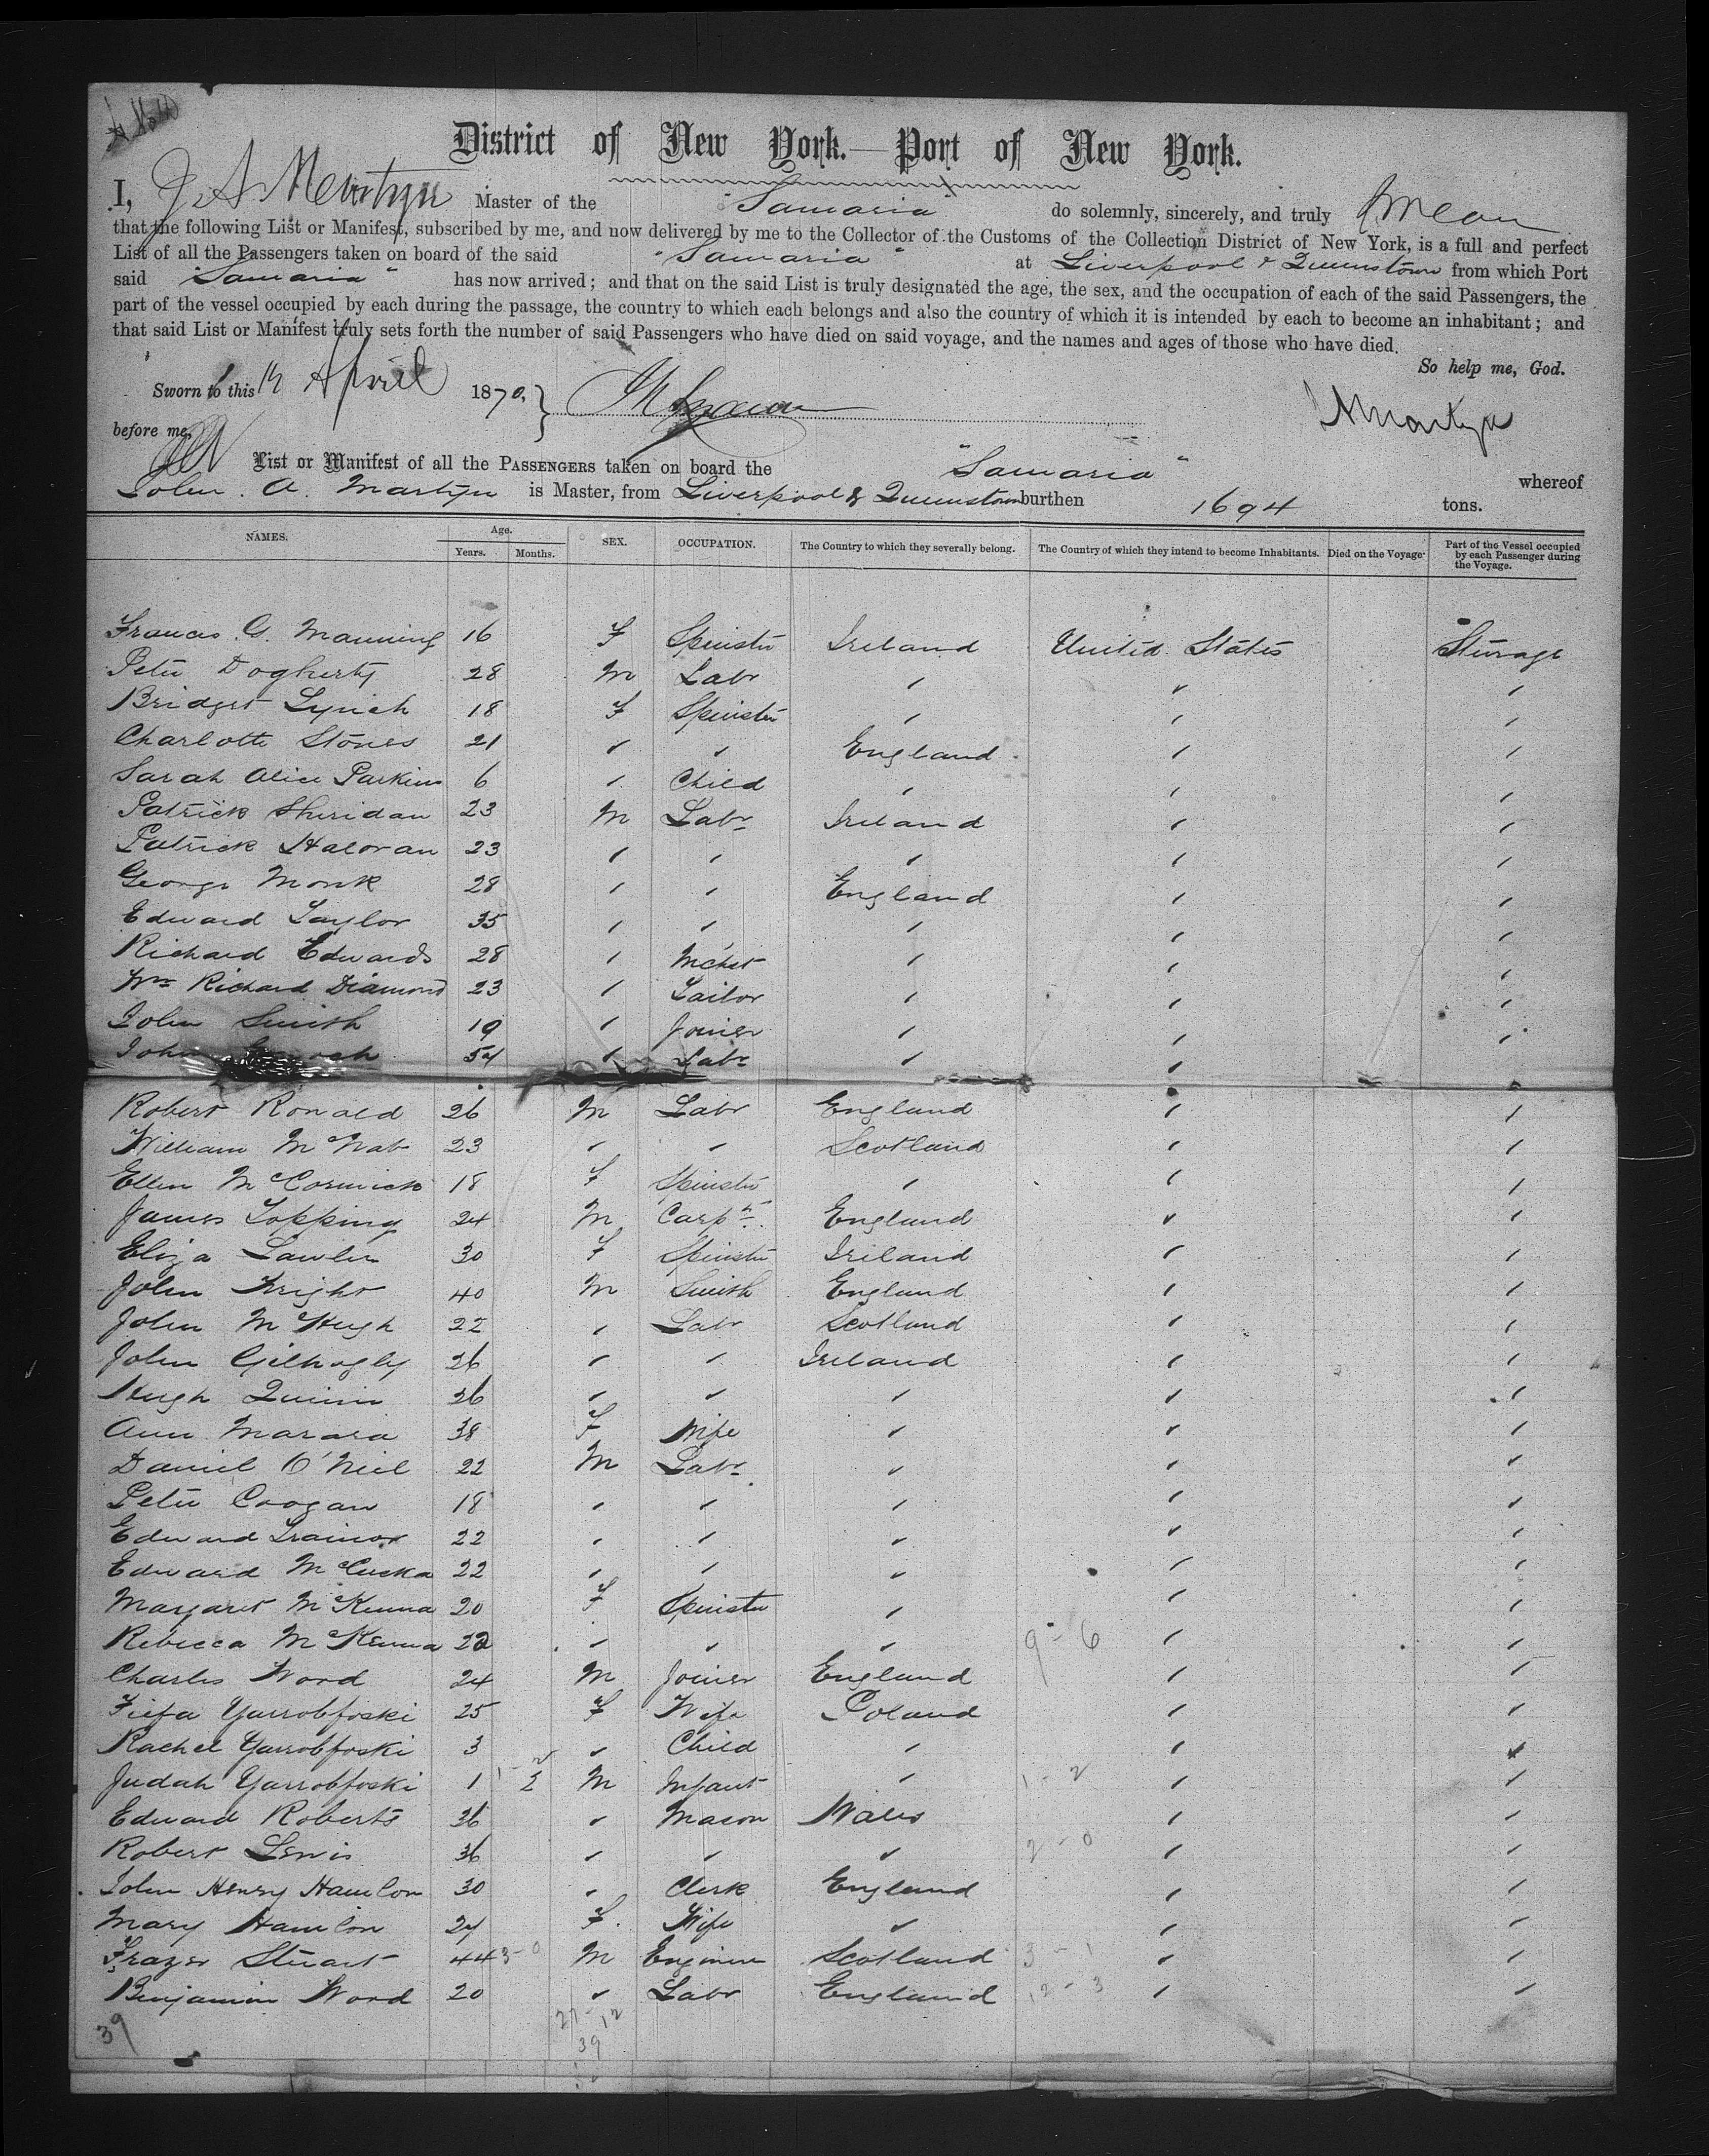 District of New York.—Port of New York.
I, J A Martyn Master of the "Samaria" do solemnly, sincerely, and truly swear
that the following List or Manifest, subscribed by me, and now delivered by me to the Collector of the Customs of the Collection District of New York, is a full and perfect
List of all the Passengers taken on board of the said "Samaria" at Liverpool & Queenstown from which Port
said "Samaria" has now arrived; and that on the said List is truly designated the age, the sex, and the occupation of each of the said Passengers, the
part of the vessel occupied by each during the passage, the country to which each belongs and also the country of which it is intended by each to become an inhabitant; and
that said List or Manifest truly sets forth the number of said Passengers who have died on said voyage, and the names and ages of those who have died.
So help me, God.
Sworn to this April 1870. }
before me, Martyn
List or Manifest of all the PASSENGERS taken on board the "Samaria" whereof
John. A. Martyn is Master, from Liverpool & Queenstown burthen 1694 tons.
NAMES. Age. Years. Months. SEX. OCCUPATION. The Country to which they severally belong. The Country of which they intend to become Inhabitants. Died on the Voyage. Part of the Vessel occupied by each Passenger during the Voyage.
Frances G. Manning 16 F Spinster Ireland United States Steerage
Peter Dogherty 28 M Labr " " "
Bridget Lynch 18 F Spinster " " "
Charlotte Stones 21 " " England " "
Sarah Alice Parkins 6 " Child " " "
Patrick Sheridan 23 M Labr Ireland " "
Patrick Haloran 23 " " " " "
George Monk 28 " " England " "
Edward Taylor 35 " " " " "
Richard Edwards 28 " Mchst " " "
Wm Richard Diamond 23 " Tailor " " "
John Smith 19 " Joiner " " "
John 54 " Labr " "
Robert Ronald 26 M Labr England " "
William McNab 23 " " Scotland " "
Ellen McCormick 18 F Spinster " " "
James Topping 24 M Carpr England " "
Eliza Lawler 30 F Spinster Ireland " "
John Wright 40 M Smith England " "
John McHugh 22 " Labr Scotland " "
John Gilhogly 26 " " Ireland " "
Hugh Quinn 26 " " " " "
Ann Marara 38 F Wife " " "
Daniel O'Neil 22 M Labr " " "
Peter Coogan 18 " " " " "
Edward Trainor 22 " " " " "
Edward McCuska 22 " " " " "
Margaret McKenna 20 F Spinster " " "
Rebecca McKenna 22 " " " 9-6 " "
Charles Word 24 M Joiner England " "
Fiefa Yarrobfoski 25 F Wife Poland " "
Rachel Yarrobfoski 3 " Child " " "
Judah Yarrobfoski 1 M Infant " 1-2 " "
Edward Roberts 36 " Mason Wales " "
Robert Lewis 36 " " " 2-0 " "
John Henry Hamlon 30 " Clerk England " "
Mary Hamlon 24 F. Wife " " "
Frazer Stuart 44 3-0 M Engineer Scotland 3-1 " "
Benjamin Word 20 " Labr England 12-3 " "
39 27-12
39